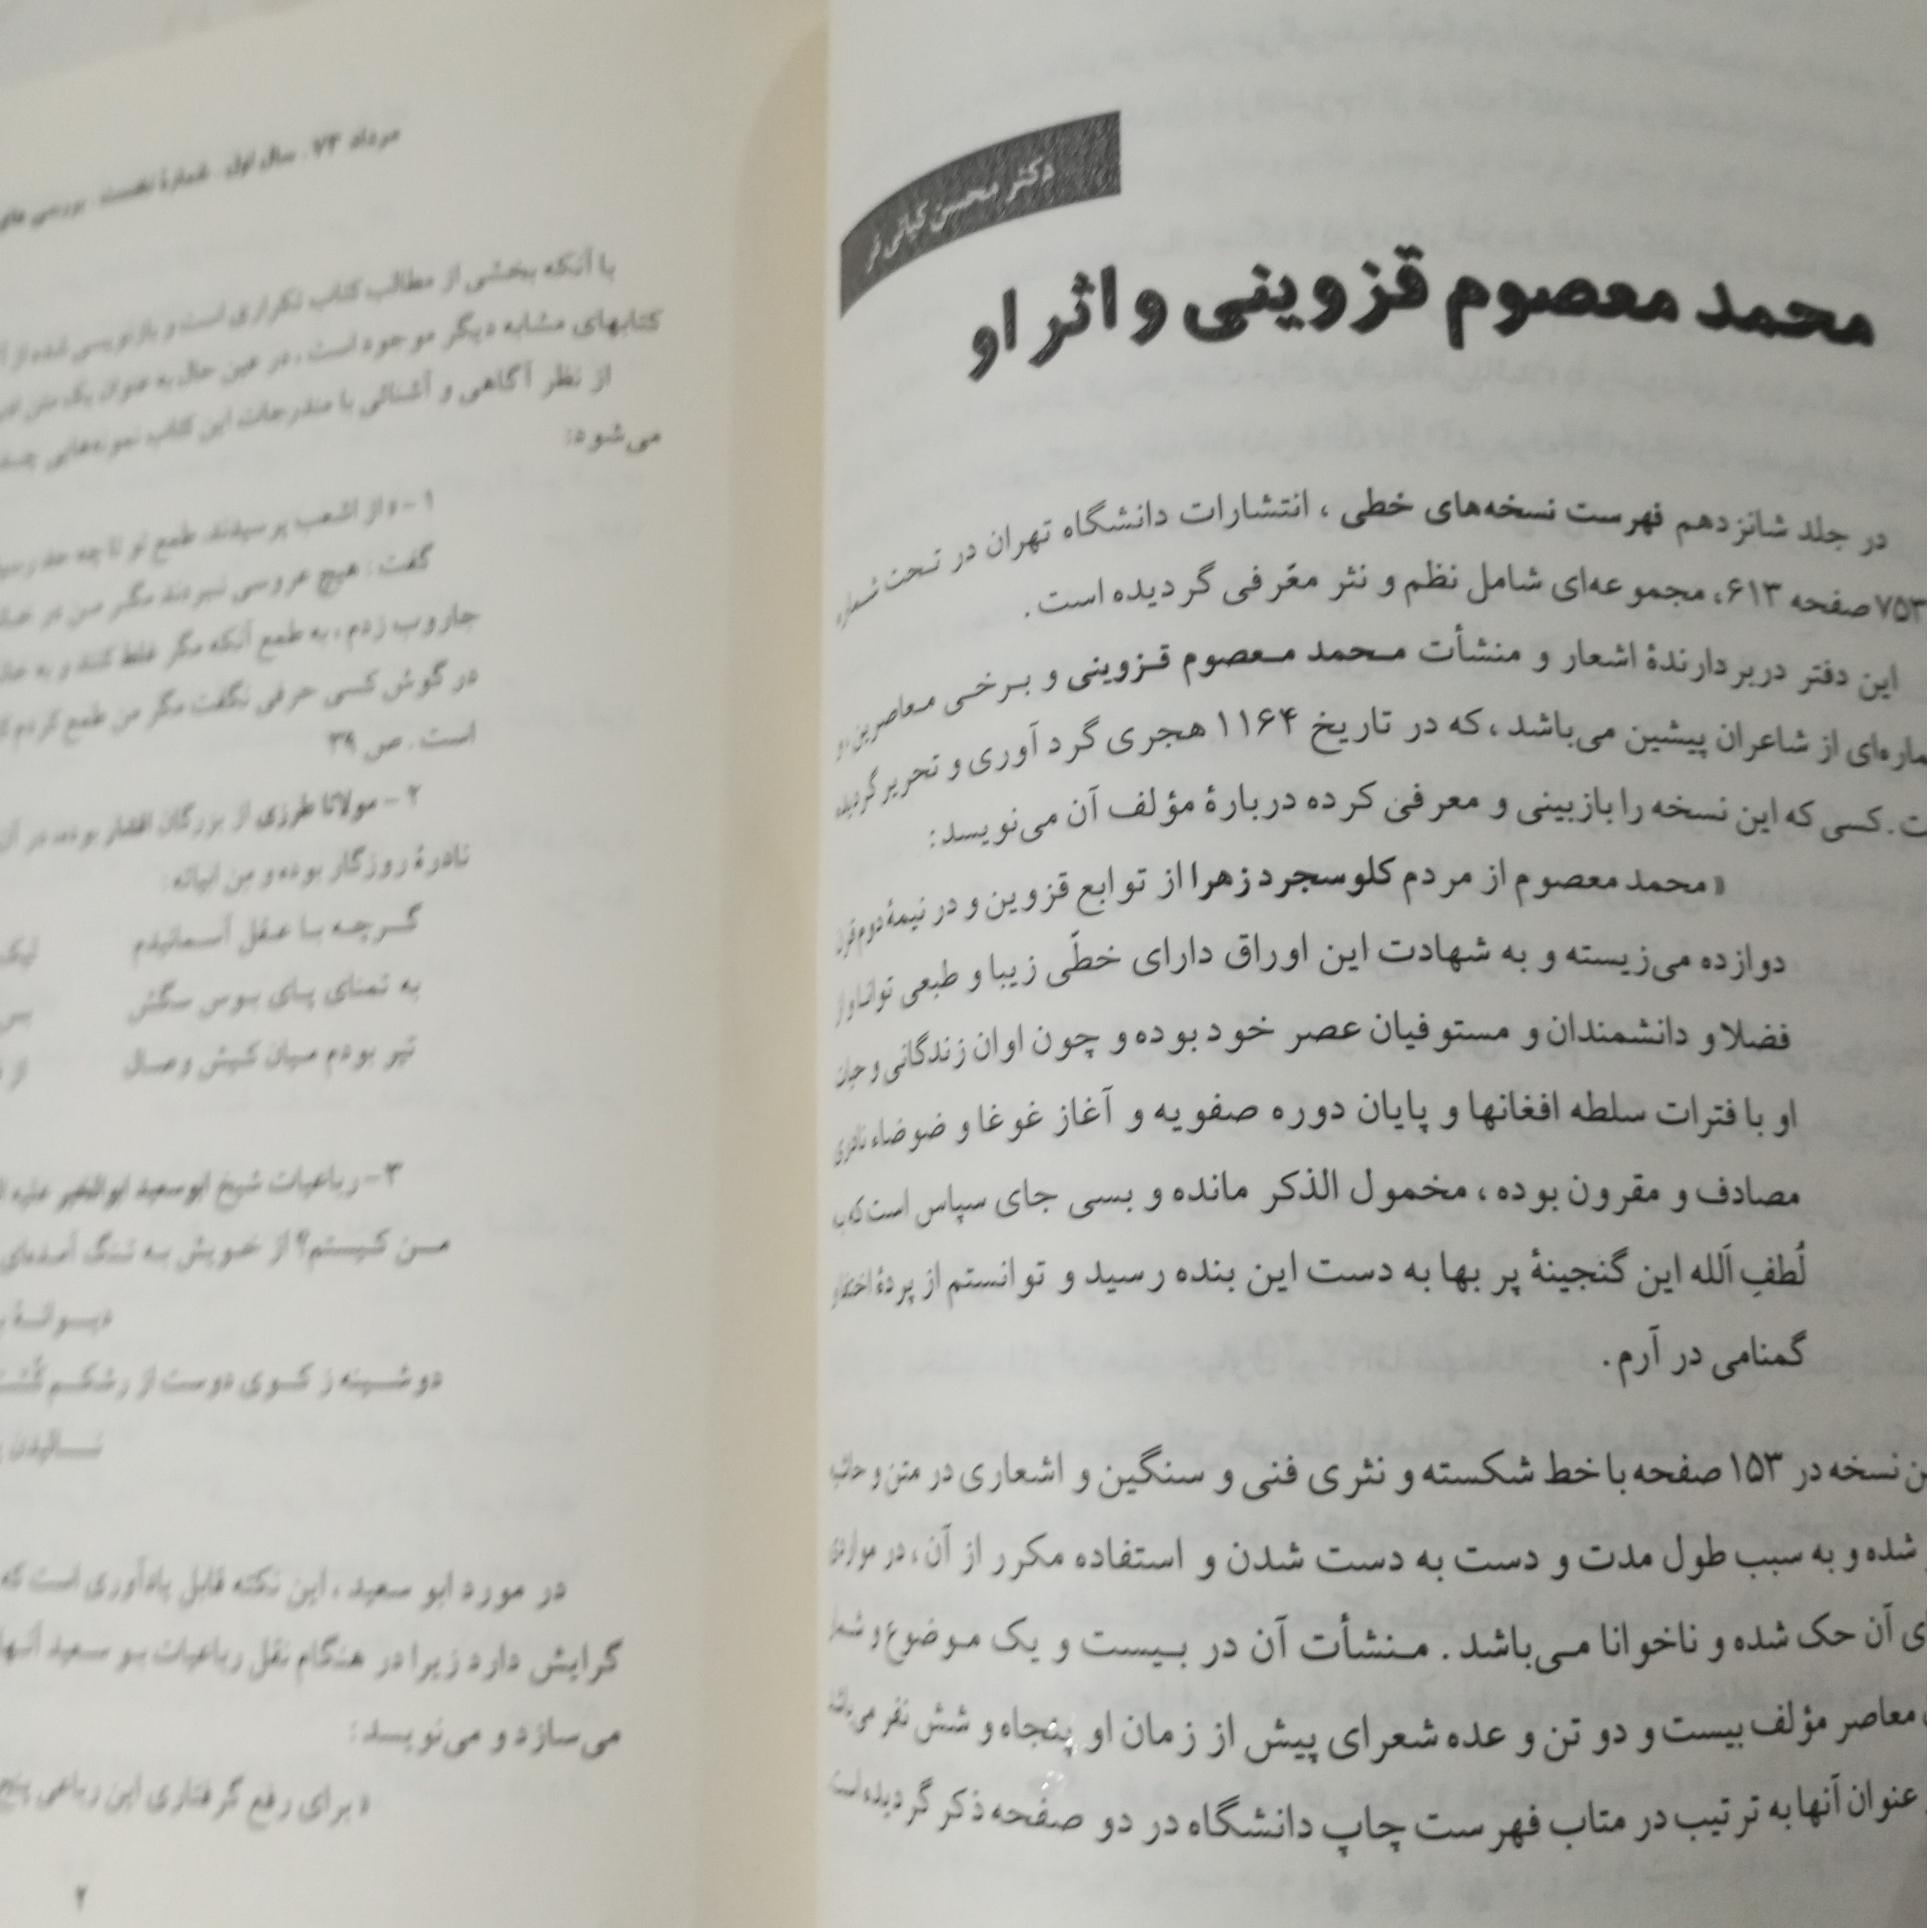 دکتر محسن کیانی فر
محمد معصوم قزوینی و اثر او
در جلد شانزدهم فهرست نسخه‌های خطی ، انتشارات دانشگاه تهران در تحت شماره
صفحه ۶۱۳، مجموعه‌ای شامل نظم و نثر معّرفی گردیده است.
این دفتر دربردارندهٔ اشعار و منشأت محمد معصوم قزوینی و برخی معاصرین و
از شاعران پیشین می‌باشد ، که در تاریخ ۱۱۶۴ هجری گرد آوری و تحریر گردیده
کسی که این نسخه را بازبینی و معرفی کرده دربارهٔ مؤلف آن می‌نویسد:
« محمد معصوم از مردم کلوسجرد زهرا از توابع قزوین و در نیمهٔ دوم قرن
دوازده می‌زیسته و به شهادت این اوراق دارای خطّی زیبا و طبعی توانا و از
فضلا و دانشمندان و مستوفیان عصر خود بوده و چون اوان زندگانی و
او با فترات سلطه افغانها و پایان دوره صفویه و آغاز غوغا و ضوضاء نادری
مصادف و مقرون بوده ، مخمول الذکر مانده و بسی جای سپاس است که
لُطفِ اَلله این گنجینهٔ پر بها به دست این بنده رسید و توانستم از پردهٔ
گمنامی در آرم.
نسخه در ۱۵۳ صفحه با خط شکسته و نثری فنی و سنگین و اشعاری در متن و
شده و به سبب طول مدت و دست به دست شدن و استفاده مکرر از آن ، در مواردی
آن حک شده و ناخوانا می‌باشد . منشأت آن در بیست و یک موضوع و
معاصر مؤلف بیست و دو تن و عده شعرای پیش از زمان او پنجاه و شش نفر می‌باشد
عنوان آنها به ترتیب در متاب فهرست چاپ دانشگاه در دو صفحه ذکر گردیده است
مرداد ۷۴ . سال اول . شمارهٔ نخست . بررسی های
با آنکه بخشی از مطالب کتاب تکراری است و بازنویسی شده از
کتابهای مشابه دیگر موجود است ، در عین حال به عنوان یک متن
از نظر آگاهی و آشنائی با مندرجات این کتاب نمونه‌هایی
می‌شود:
۱ - از اشعب پرسیدند، طمع تو تا چه حد
گفت : هیچ عروسی نبردند مگر من در
جاروب زدم ، به طمع آنکه مگر غلط کنند و به
در گوش کسی حرفی نگفت مگر من طمع کردم
است . ص ۳۹
۲ - مولانا طرزی از بزرگان افشار بوده، در
نادرهٔ روزگار بوده و من ابیاته :
گرچه با عقل آسمانیدم
به تمنای پای بوس سگش
تیر بودم میان کیش وصال
۳ - رباعیات شیخ ابوسعید ابوالخیر علیه
من کیستم؟ از خویش به تنگ آمده‌ای
دیوانهٔ
دوشینه ز کوی دوست از رشکم
نالیدن
در مورد ابو سعید ، این نکته قابل یادآوری است که
گرایش دارد زیرا در هنگام نقل رباعیات بو سعید
می‌سازد و می‌نویسد :
« برای رفع گرفتاری این رباعی
۲